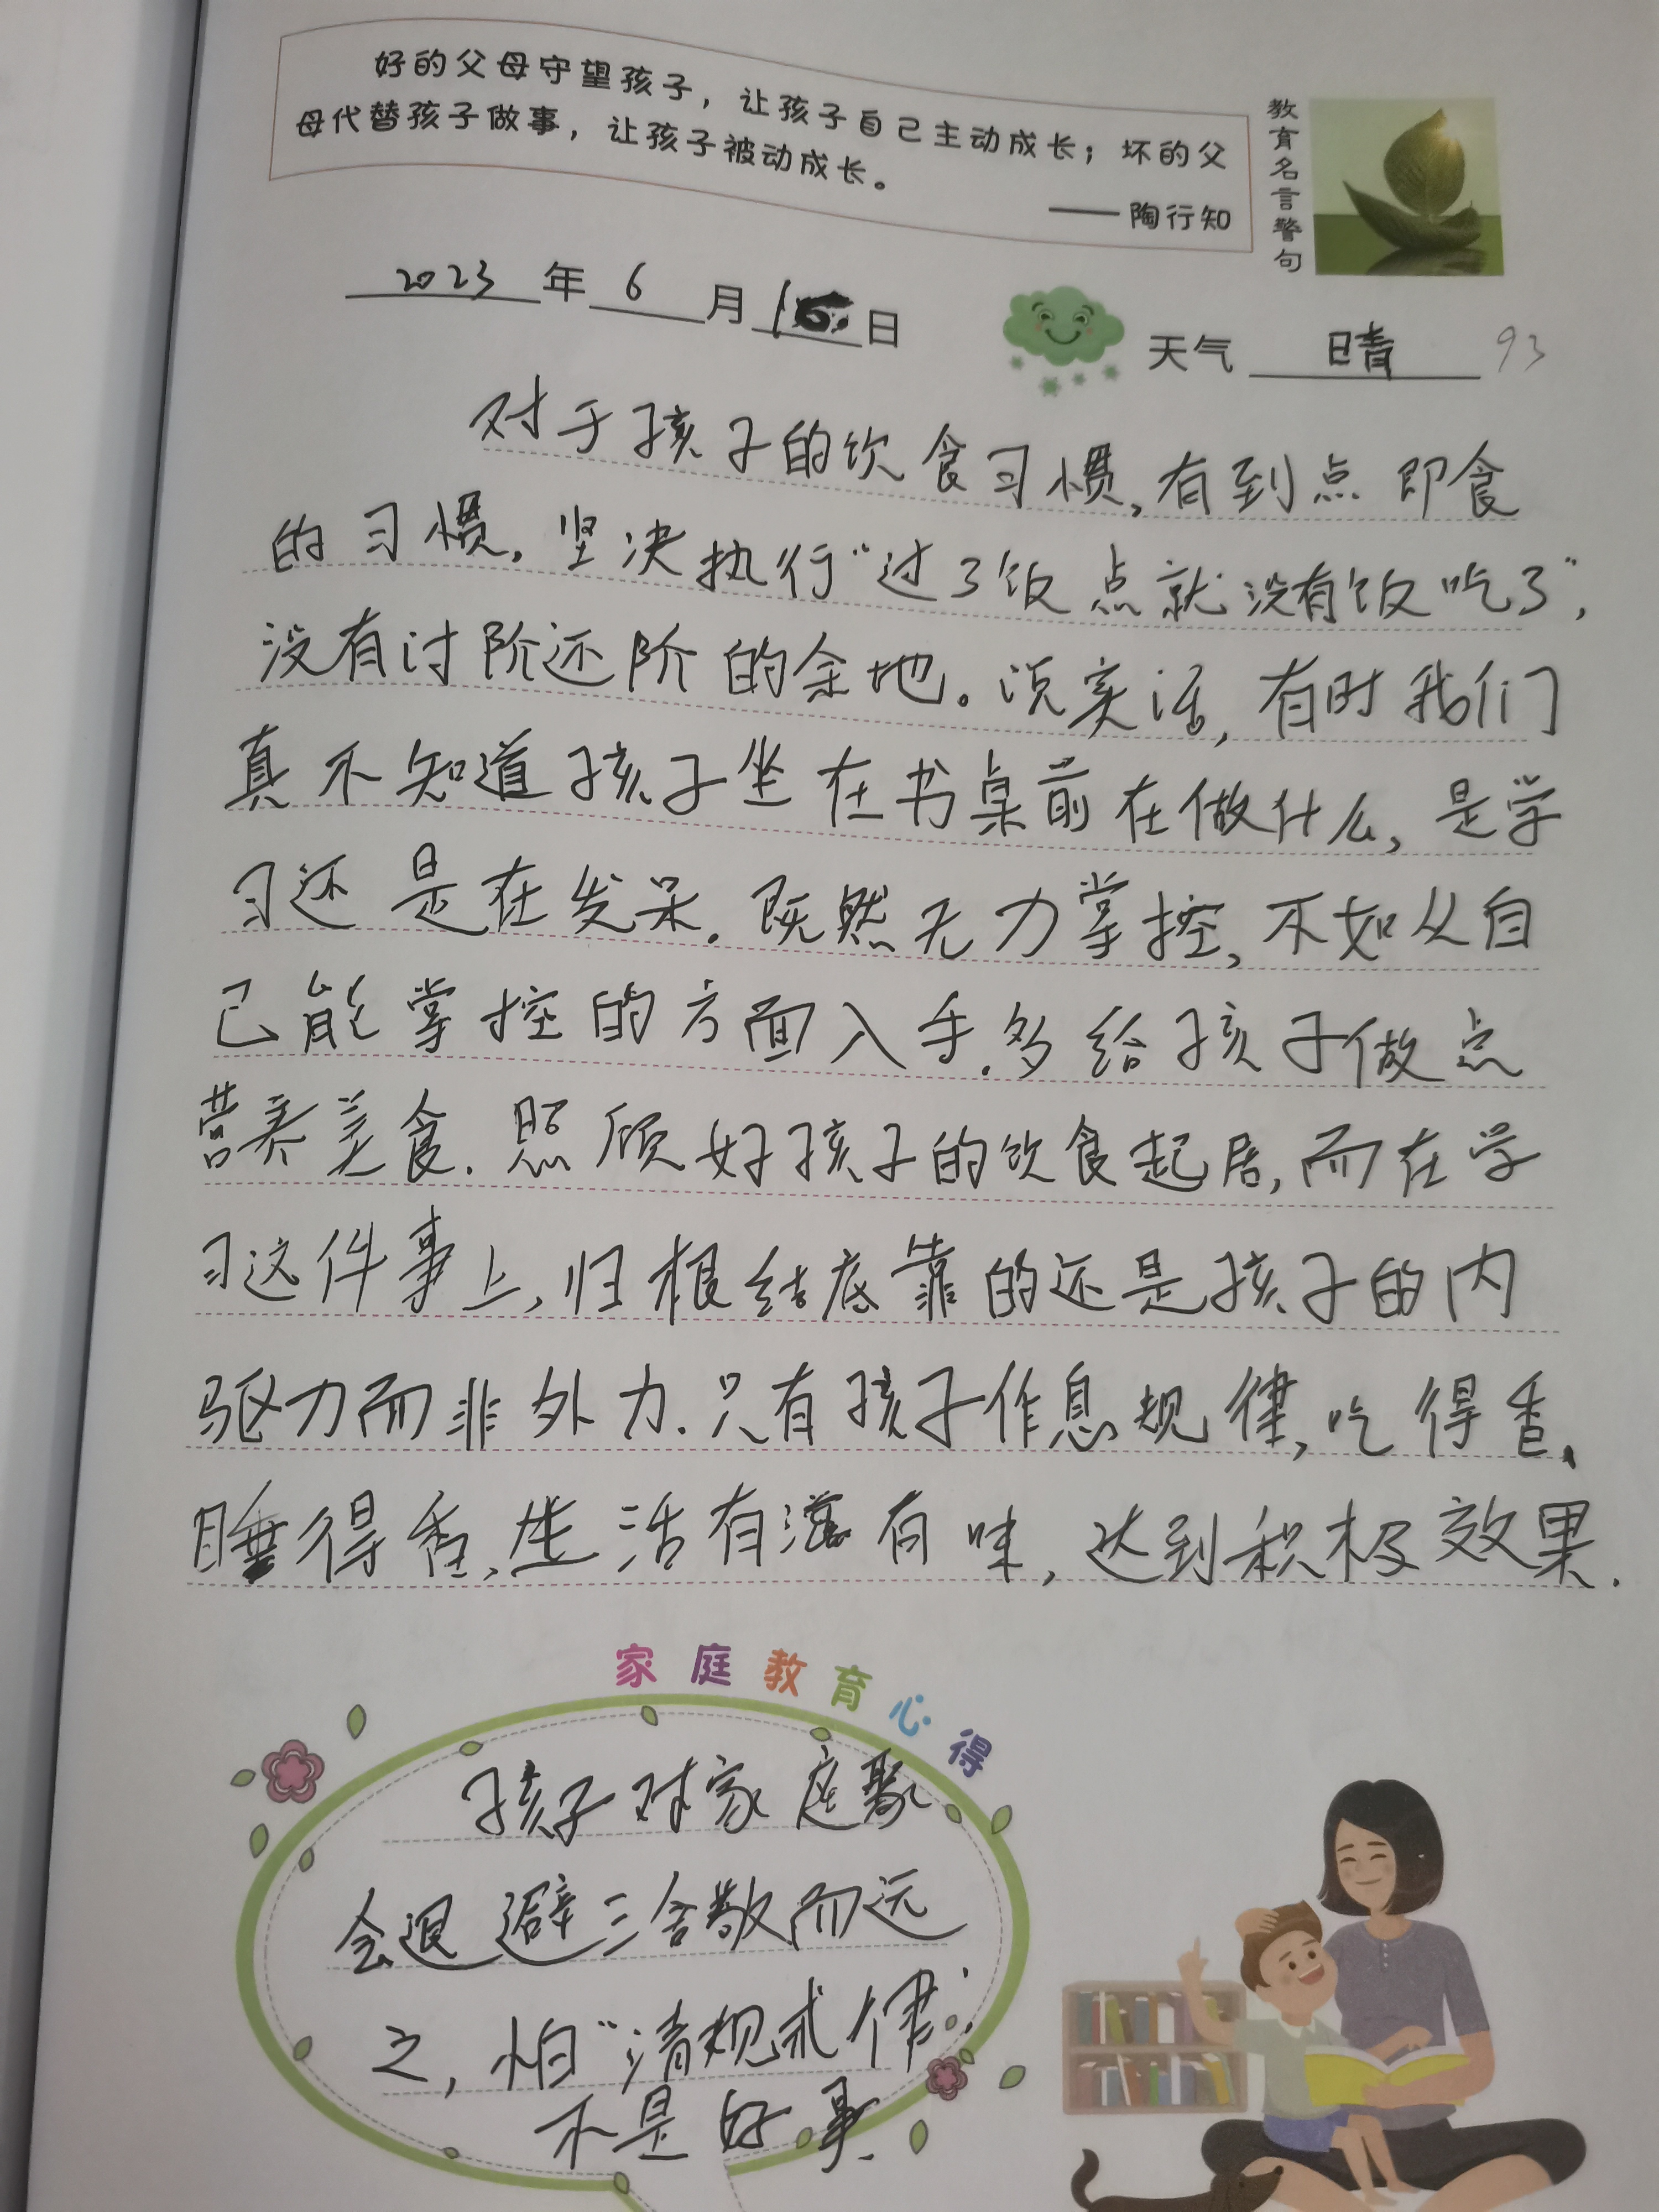 好的父母守望孩子，让孩子自己主动成长；坏的父
母代替孩子做事，让孩子被动成长。
——陶行知
教育名言警句
2023年6月1日
天气 晴 93
对于孩子的饮食习惯，有到点即食
的习惯，坚决执行“过了饭点就没有饭吃了”，
没有讨阶还阶的余地。说实话，有时我们
真不知道孩子坐在书桌前在做什么，是学
习还是在发呆。既然无力掌控，不如从自
己能掌控的方面入手，多给孩子做点
营养美食，照顾好孩子的饮食起居，而在学
习这件事上，归根结底靠的还是孩子的内
驱力而非外力。只有孩子作息规律，吃得香、
睡得香，生活有滋有味，达到积极效果.
家庭教育心得
孩子对家庭聚
会退避三舍敬而远
之，怕“清规戒律”
不是好事.